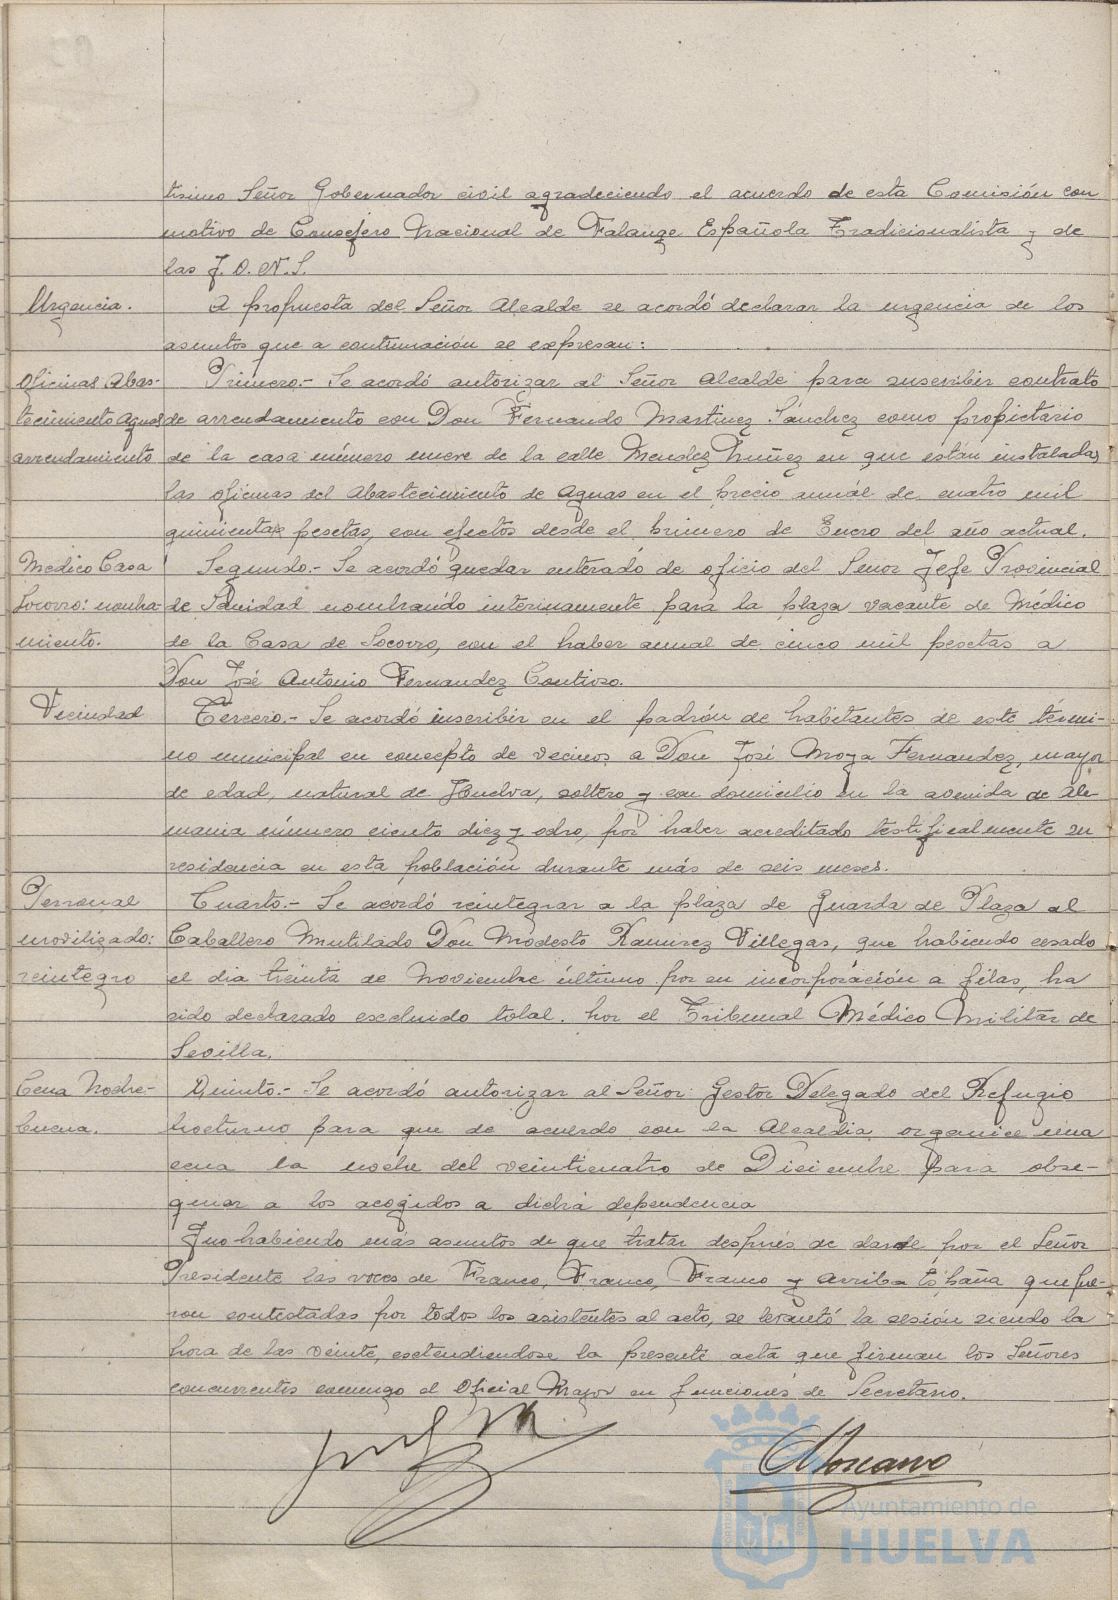 tísimo Señor Gobernador civil agradeciendo el acuerdo de esta Comisión con
motivo de Consejero Nacional de Falange Española Tradicionalista y de
las J.O.N.S.
Urgencia.
A propuesta del Señor Alcalde se acordó declarar la urgencia de los
asuntos que a continuación se expresan:
Oficinas Abas-
tecimiento Aguas
arrendamiento
Primero.- Se acordó autorizar al Señor Alcalde para suscribir contrato
de arrendamiento con Don Fernando Martinez Sánchez como propietario
de la casa número nueve de la calle Mendez Nuñez en que están instaladas
las oficinas del Abastecimiento de Aguas en el precio anuál de cuatro mil
quinientas pesetas, con efectos desde el primero de Enero del año actual.
Medico Casa
Socorro: nombra-
miento.
Segundo.- Se acordó quedar enterado de oficio del Señor Jefe Provincial
de Sanidad nombrando interinamente para la plaza vacante de Médico
de la Casa de Socorro, con el haber anual de cinco mil pesetas a
Don José Antonio Fernandez Contioso.
Vecindad
Tercero.- Se acordó inscribir en el padrón de habitantes de este térmi-
no municipal en concepto de vecinos a Don José Moya Fernandez, mayor
de edad, natural de Huelva, soltero y con domicilio en la avenida de Ale-
mania número ciento diez y ocho, por haber acreditado testificalmente su
residencia en esta población durante más de seis meses.
Personal
movilizado:
reintegro
Cuarto.- Se acordó reintegrar a la plaza de Guarda de Plaza al
Caballero Mutilado Don Modesto Ramirez Villegas, que habiendo cesado
el dia treinta de Noviembre último por su incorporación a filas, ha
sido declarado excluido total por el Tribunal Médico Militar de
Sevilla.
Cena Noche-
buena.
Quinto.- Se acordó autorizar al Señor Gestor Delegado del Refugio
Nocturno para que de acuerdo con la Alcaldia organice una
cena la noche del veinticuatro de Diciembre para obse-
quiar a los acogidos a dicha dependencia
Y no habiendo más asuntos de que tratar después de darse por el Señor
Presidente las voces de Franco, Franco, Franco y Arriba España que fue-
ron contestadas por todos los asistentes al acto, se levantó la sesión siendo la
hora de las veinte, extendiendose la presente acta que firman los Señores
concurrentes conmigo el Oficial Mayor en funciones de Secretario.
Moscano
Ayuntamiento de
HUELVA